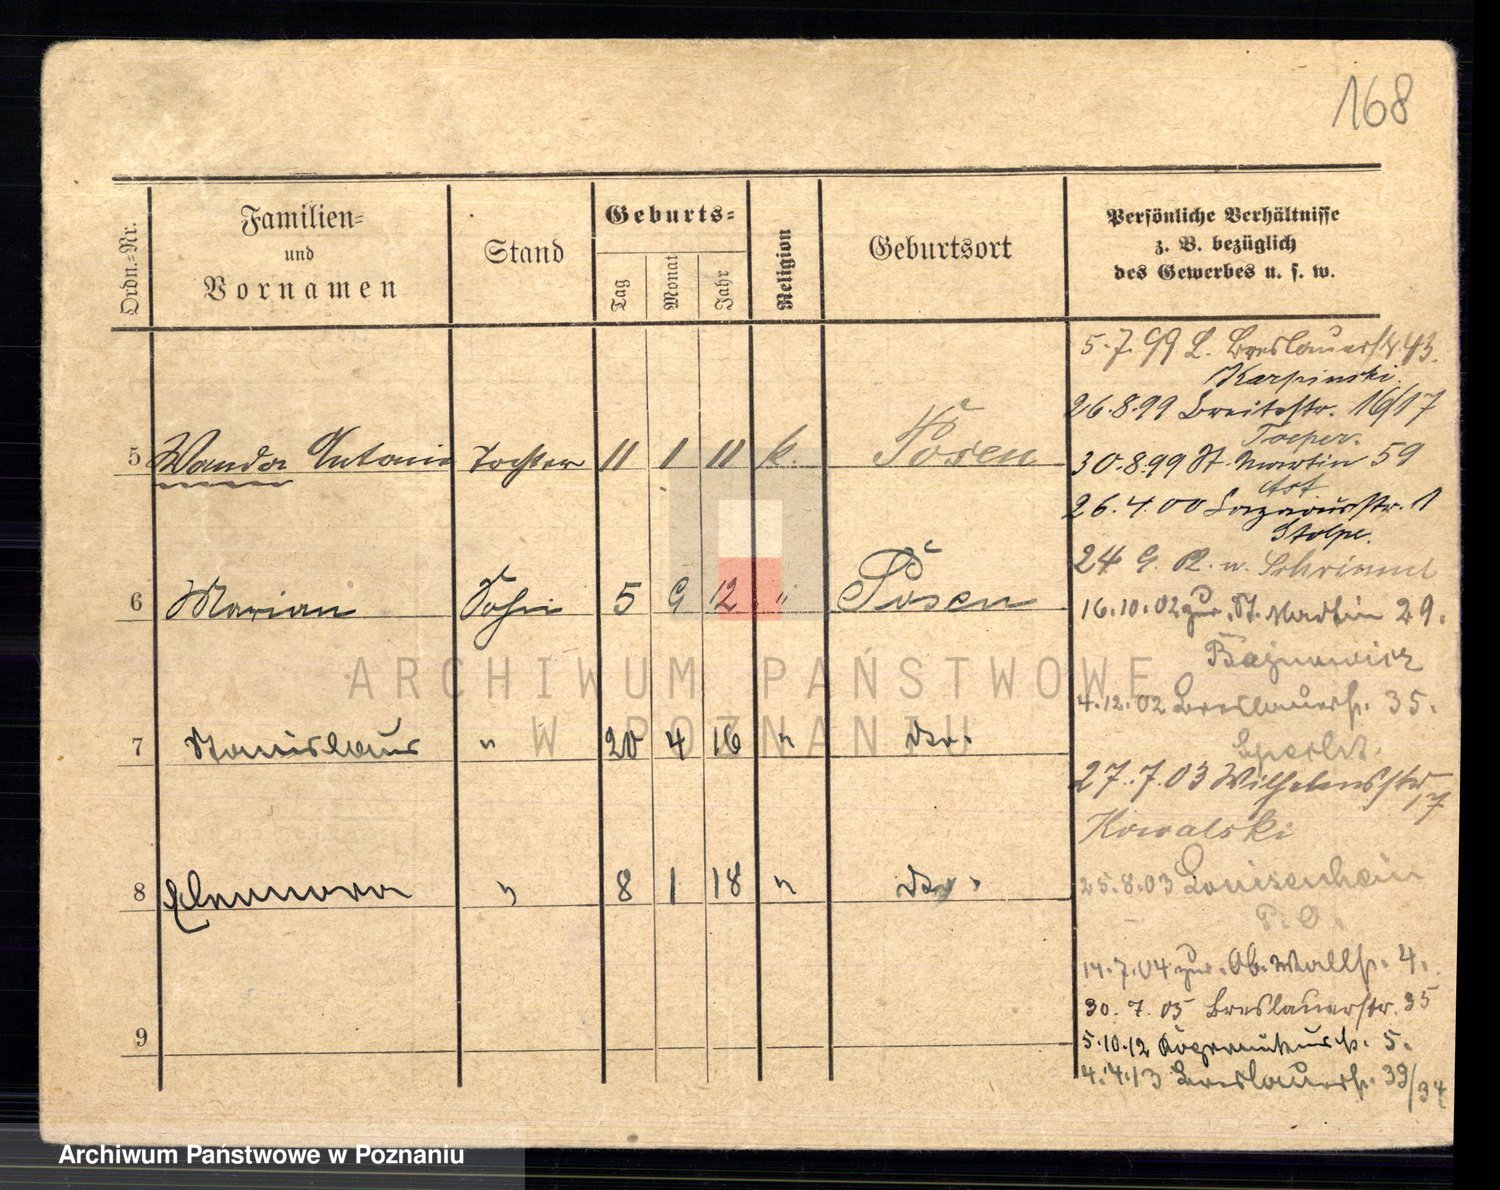 168
Ordn.=Nr.
Familien=
und
Vornamen
Stand
Geburts=
Tag
Monat
Jahr
Religion
Geburtsort
Persönliche Verhältnisse
z. B. bezüglich
des Gewerbes u. s. w.
5 Wanda Antonie Tochter 11 1 11 k. Posen
6 Marian Sohn 5 9 12 " Posen
7 Stanislaus " 20 4 16 " dto.
8 Eleonora " 8 1 18 " dto.
9
5.7.99 Breslauerstr. 43.
Karpinski.
26.8.99 Breitestr. 16/17
30.8.99 St. Martin 59
Ast
26.4.00 Lazarusstr. 1
Stolpe.
24 9. n. Schrimm
16.10.02 zur. St. Martin 29.
4.12.02 Breslauerstr. 35.
27.7.03 Wilhelmstr.
17
Kowalski
25.8.03 Louisenhein
P. O.
7.04 zur. Ob. Wallstr. 4.
30.7.05 Breslauerstr. 35
5.10.12 5.
4.4.13 Breslauerstr. 33/34
ARCHIWUM PAŃSTWOWE
W POZNANIU
Archiwum Państwowe w Poznaniu